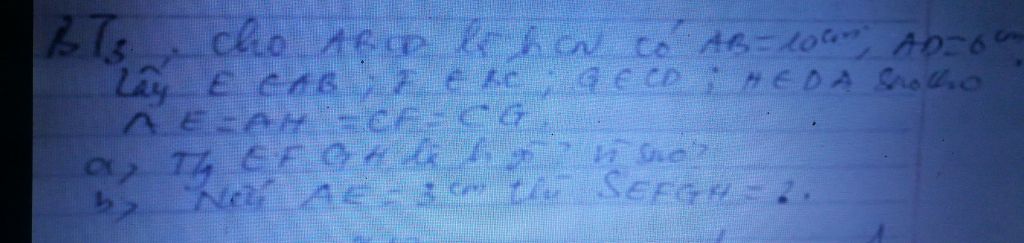 BT3, Cho ABCD là hCN có AB=10cm, AD=6cm.
Lấy E ∈ AB ; F ∈ BC ; G ∈ CD ; H ∈ DA sao cho
AE = AH = CF = CG.
a, Tg EFGH là h gì? vì sao?
b, Nếu AE = 3cm thì SEFGH = ?.